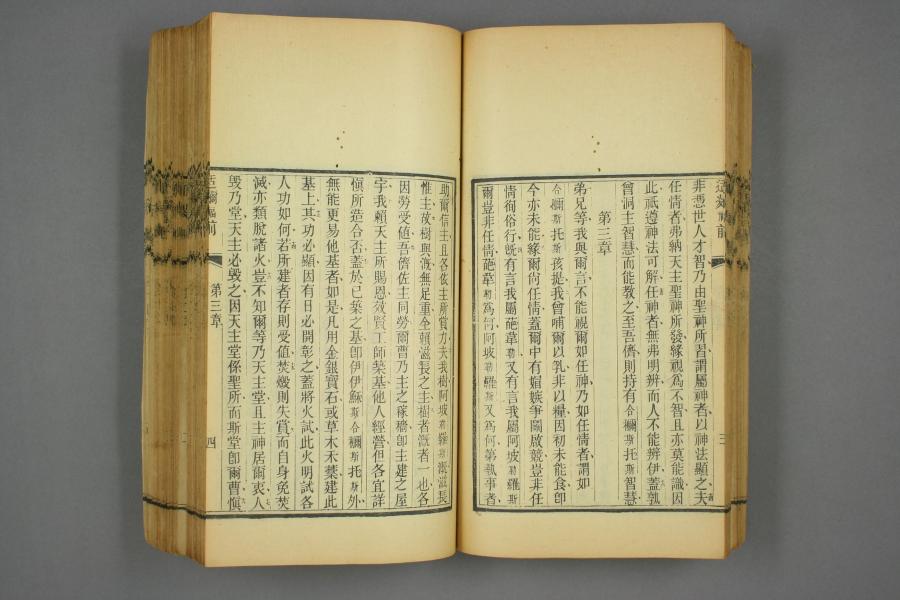 非憑世人才智乃由聖神所習謂屬神者以神法顯之夫
任情者弗納天主聖神所發緣視爲不智且亦莫能識因
此祇遵神法可解任神者無弗明辨而人不能辨伊蓋孰
曾洞主智慧而能教之至吾儕則持有合穪斯托斯智慧
第三章
弟兄等我與爾言不能視爾如任神乃如任情者謂如
合穪斯托斯孩提我曾哺爾以乳非以糧因初未能食卽
今亦未能緣爾尙任情蓋爾中有媢嫉爭鬭啟競豈非任
情徇俗行旣有言我屬葩韋勒又有言我屬阿坡勒羅斯
爾豈非任情葩韋勒爲何阿坡勒羅斯又爲何第執事者
三
助爾信主且各依主所賞力夫我樹阿坡勒羅斯漑滋長
惟主故樹與漑無足重全賴滋長之主樹者漑者一也各
因勞受値吾儕佐主同勞爾曹乃主之稼穡卽主建之屋
宇我賴天主所賜恩效賢工師築基他人經營但各宜詳
愼所造合否蓋於已築之基卽伊伊穌斯合穪斯托斯外
無能更易他基者如是凡用金銀寶石或草木禾藁建此
基上其功必顯因有日必開彰之蓋將火試此火明試各
人功如何若所建者存則受値焚燬則失賞而自身免焚
滅亦類脫諸火豈不知爾等乃天主堂且主神居爾衷人
毀乃堂天主必毀之因天主堂係聖所而斯堂卽爾曹愼
前 第三章 四